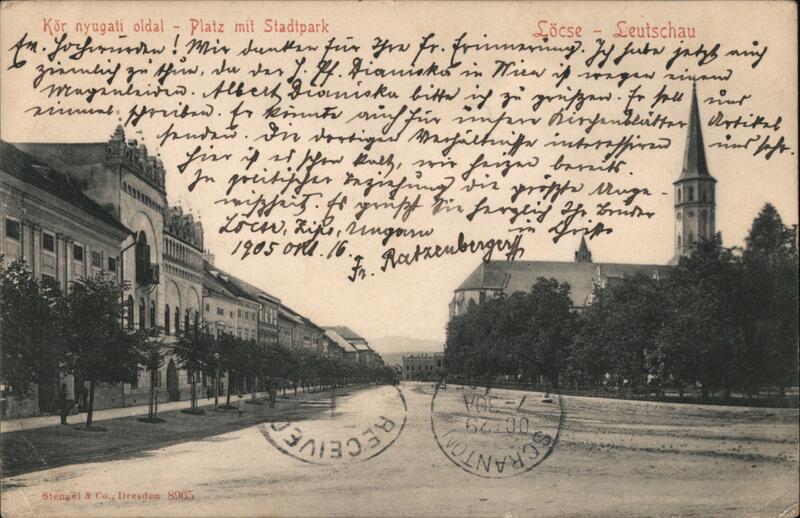 Kör nyugati oldal - Platz mit Stadtpark
Löcse - Leutschau
Ew. Hochwürden! Wir danken für Ihre fr. Erinnerung. Ich habe jetzt auch
ziemlich zu thun, da der H. Pf. Dianiska in Wien ist wegen einem
Magenleiden. Albert Dianiska bitte ich zu grüßen. Er soll uns
einmal schreiben. Er könnte auch für unsere Kirchenblätter Artikel
senden. Die dortigen Verhältnisse interessiren uns sehr.
Hier ist es schon kalt, wir heizen bereits.
In politischer Beziehung die größte Unge-
wißheit. Es grüßt Sie herzlich Ihr Bruder
Löcse, Zips, Ungarn in Christo
1905 Okt. 16. Fr. Ratzenberger
RECEIVED
SCRANTON
OCT 29
1-30A
Stengel & Co., Dresden 8965